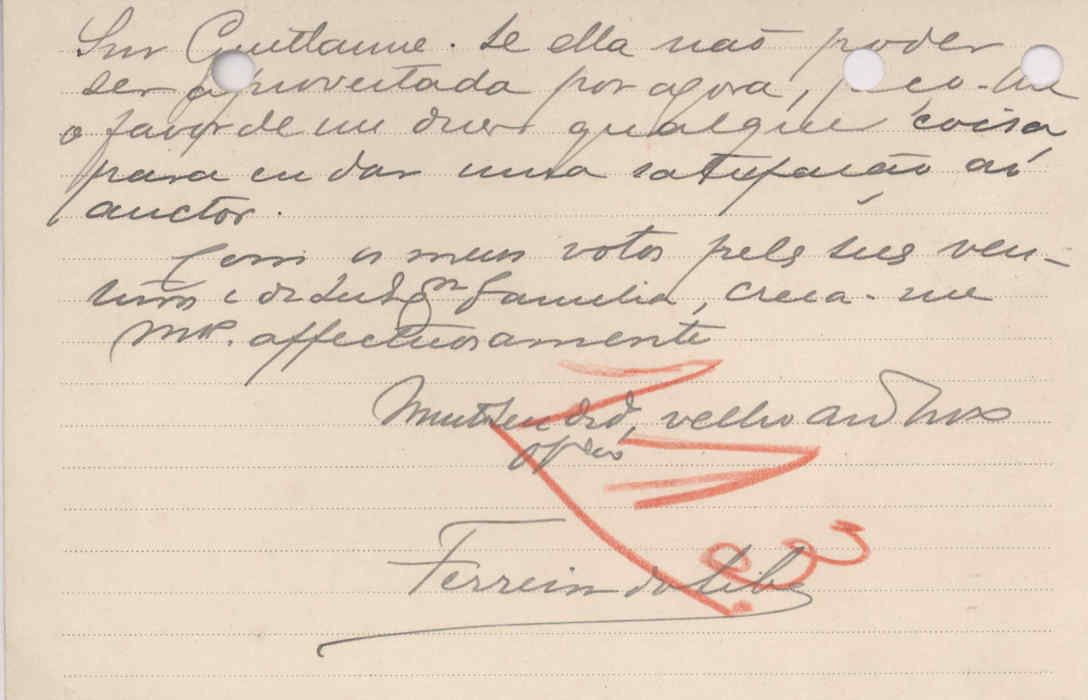 Snr Guillaume. Se ella nao poder
ser aproveitada por agora, peço-lhe
o favor de me dizer qualquer coisa
para eu dar uma satisfação ao
auctor.
Com os meus votos pelas suas ven-
turas e da sua Exma familia, creia-me
mto. affectuosamente
velho am.º
Ferreira da Silva